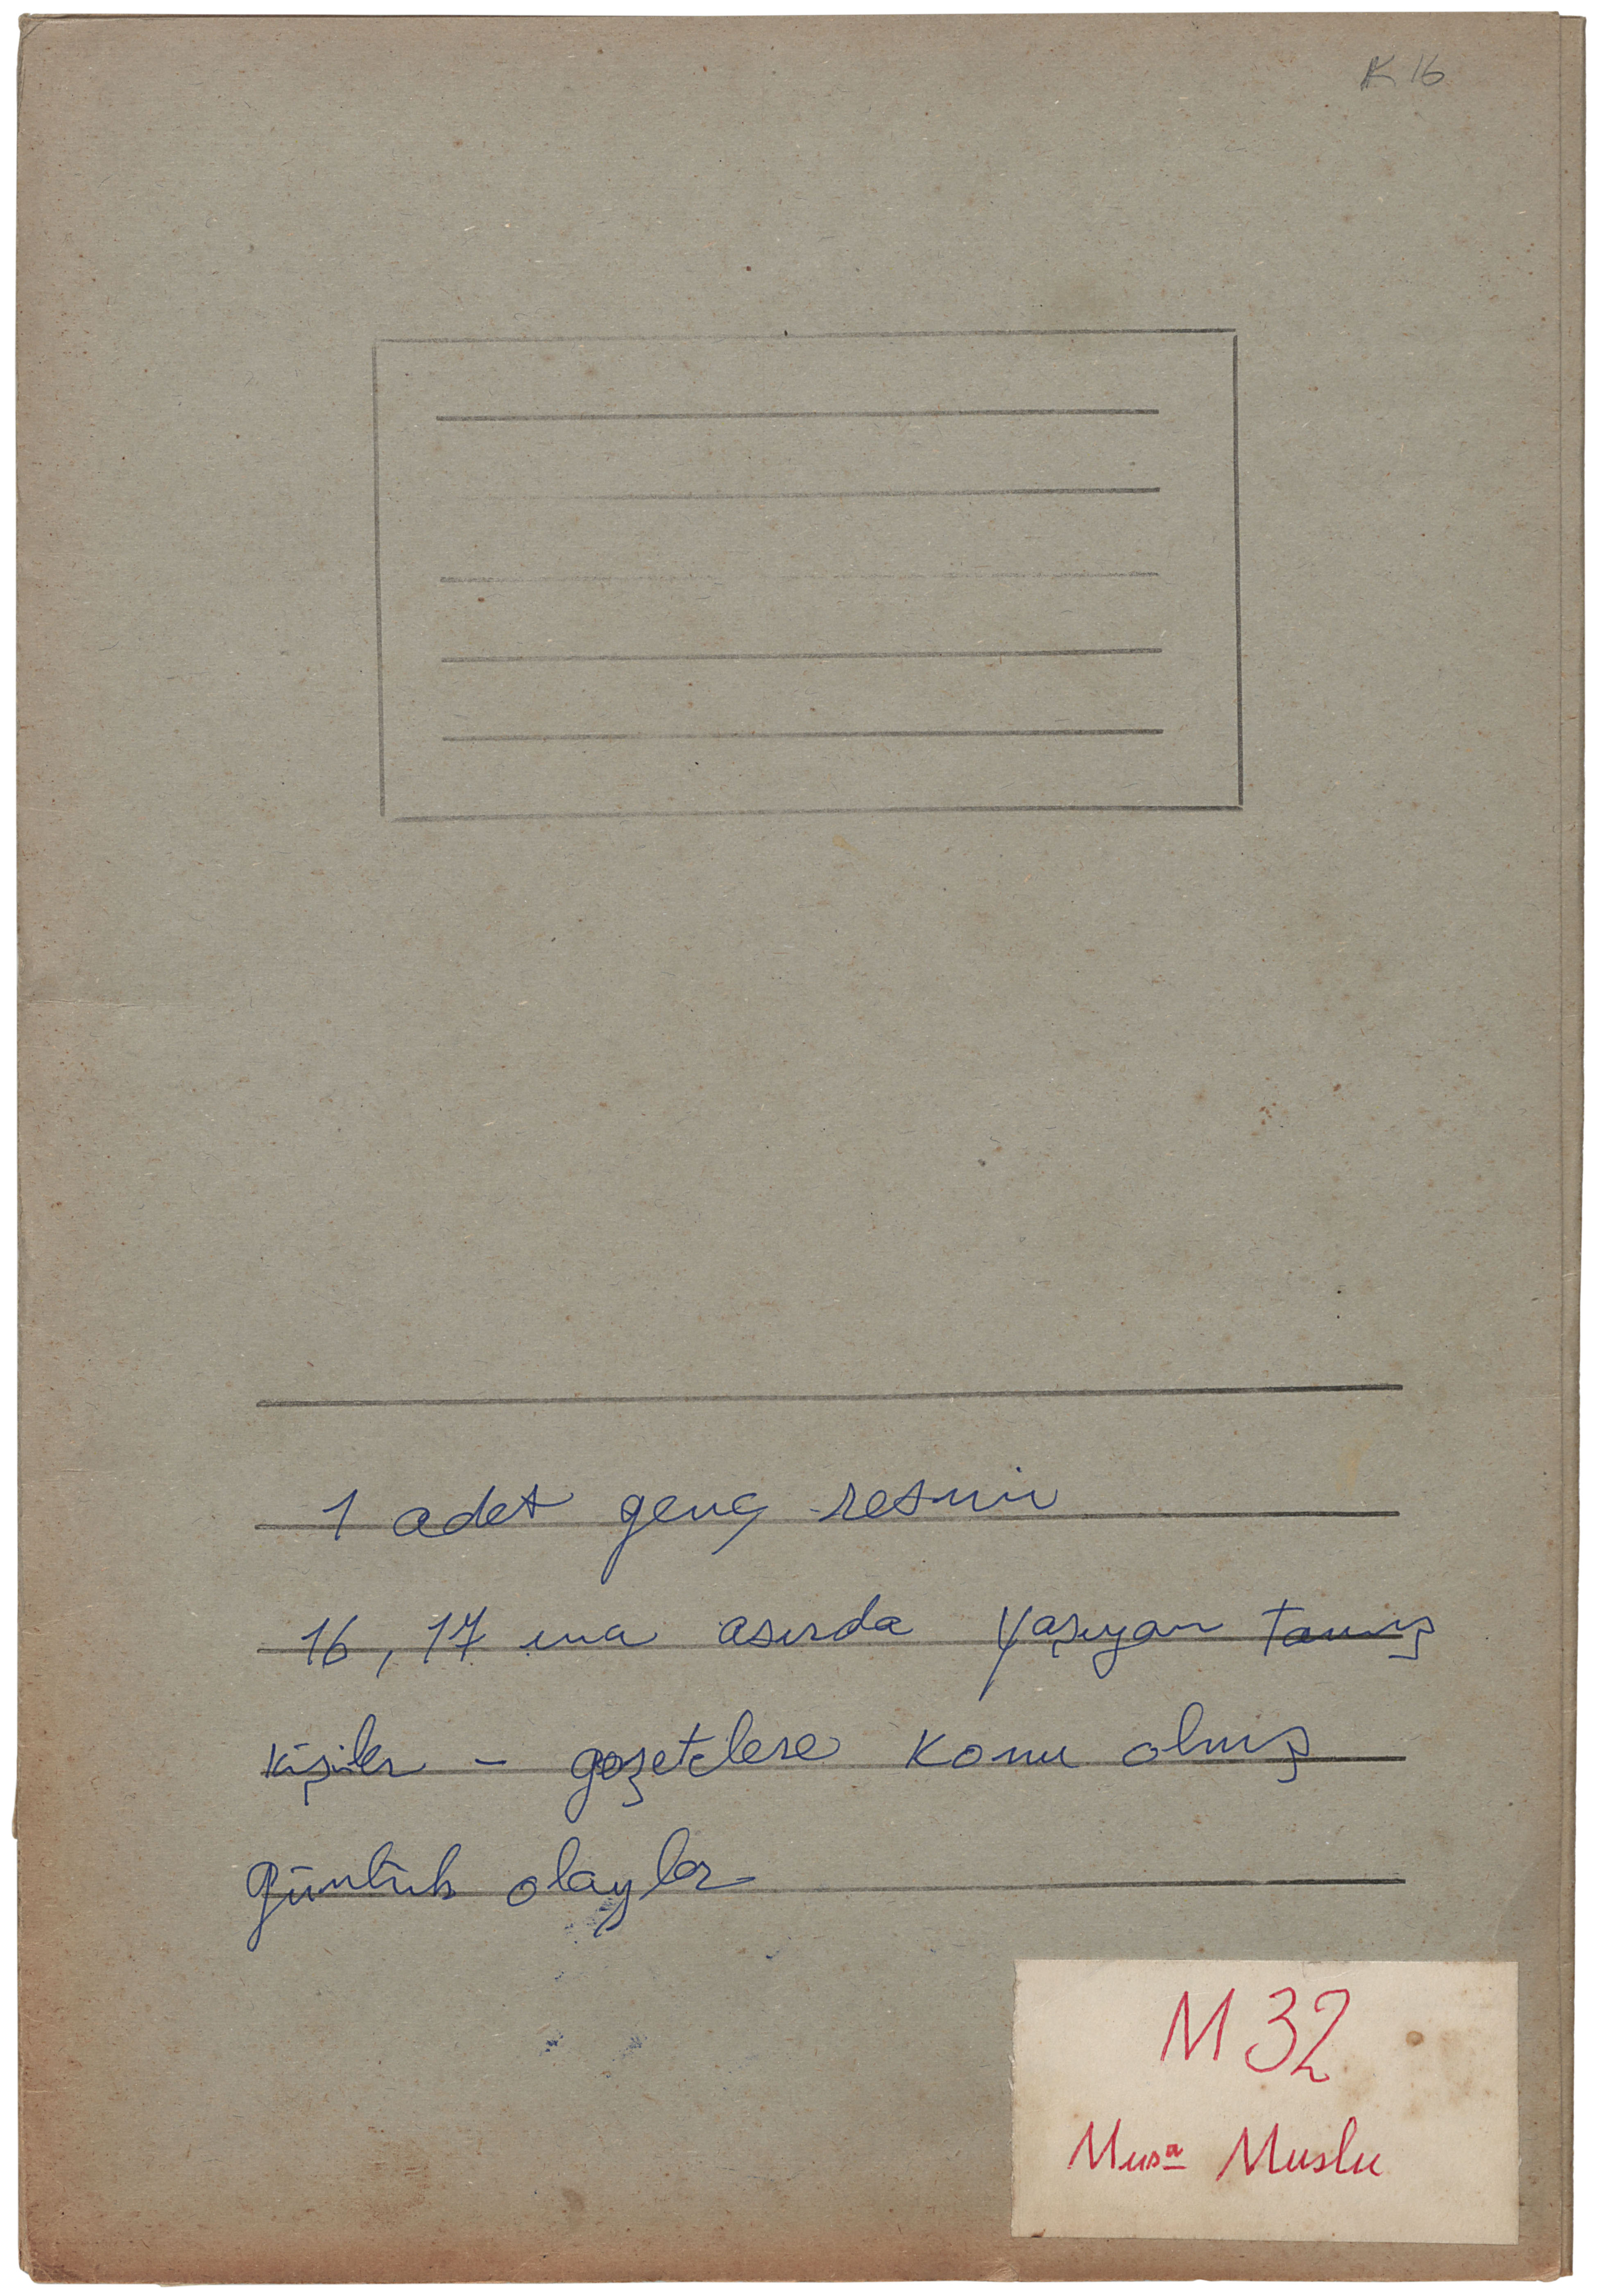 K 16
1 adet genç resmi
16, 17 ıncı asırda yaşıyan tanış
kişiler - gazetelere konu olmuş
günlük olaylar
M 32
Musa Muslu